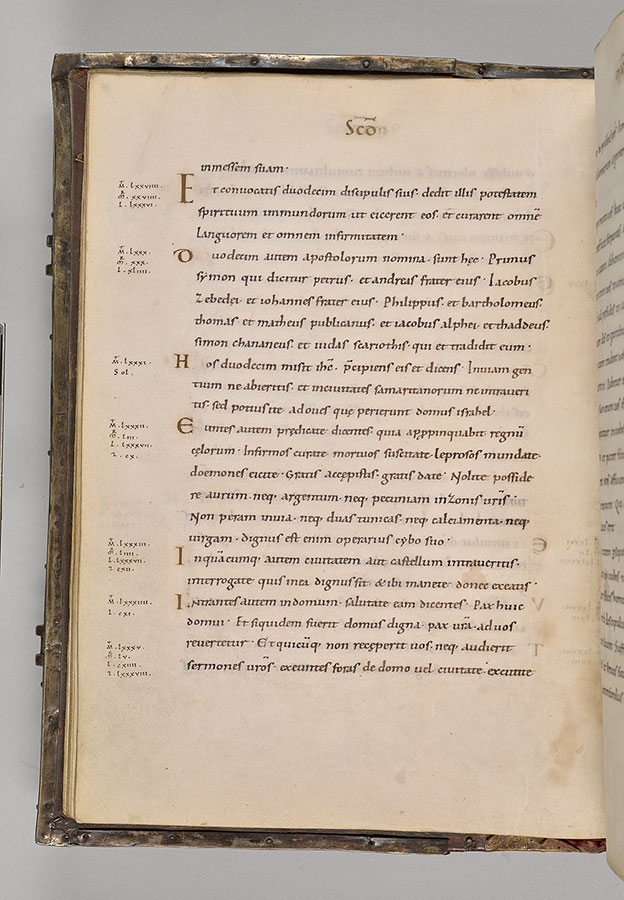 Scd̄o
inmessem suam·
Et convocatis duodecim discipulis suis· dedit illis potestatem
spirituum immundorum ut eicerent eos· et curarent omnē
languorem et omnem infirmitatem·
Duodecim autem apostolorum nomina· sunt hęc· Primus
symon qui dicitur petrus· et andreas frater eius· Iacobus
Zebedei· et iohannes frater eius· Philippus· et bartholomeus·
thomas· et matheus publicanus· et iacobus alphei· et thaddeus·
simon chananeus· et iudas scariothis· qui et tradidit eum·
Hos duodecim misit ihc̄· p̄cipiens eis et dicens· Inuiam gen
tium ne abieritis· et inciuitates samaritanorum ne intraueri
tis· sed potius ite ad oues quę perierunt domus israhel·
Euntes autem prędicate dicentes· quia appropinquabit regnū
cęlorum· Infirmos curate· mortuos suscitate· leprosos mundate·
doemones eicite· Gratis accępistis· gratis date· Nolite posside
re aurum· neq· argentum· neq· pecuniam inzonis ur̄is·
Non peram inuia· neq· duas tunicas· neq· calciamenta· neq·
uirgam· dignus est enim operarius cybo suo·
Inquācumq· autem ciuitatem aut castellum intraueritis·
interrogate quis inea dignus sit· & ibi manete donec exeatis·
Intrantes autem indomum· salutate eam dicentes· Pax huic
domui· Et siquidem fuerit domus digna· pax ur̄a· ad uos
reuertetur· Et quicūq· non receperit uos· neq· audierit
sermones ur̄os· exeuntes foras de domo uel ciuitate· excutite
m̄· lxxviiii·
m̄r· xxviiii·
l· lxxxvi·
m̄· lxxx·
m̄r· xxx·
l· xliiii·
m̄· lxxxi·
Sol·
m̄· lxxxii·
m̄r· liii·
l· lxxxvii·
2· cx·
m̄· lxxxiii·
l· lxxxvii·
2· cxii·
m̄· lxxxiiii·
l· cxi·
m̄· lxxxv·
m̄r· lv·
l· cxiii·
2· lxxxviii·